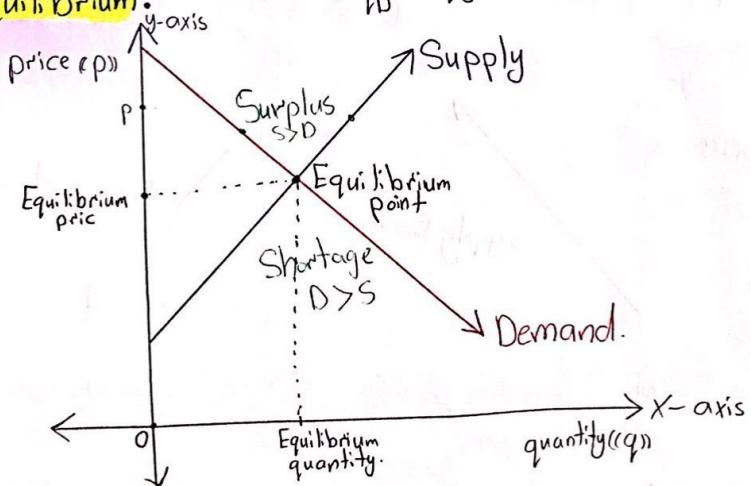 y-axis
price «p»
Supply
P
Surplus
S>D
Equilibrium
pric
Equilibrium
point
Shortage
D>S
Demand.
X-axis
0
Equilibrium
quantity.
quantity «q»